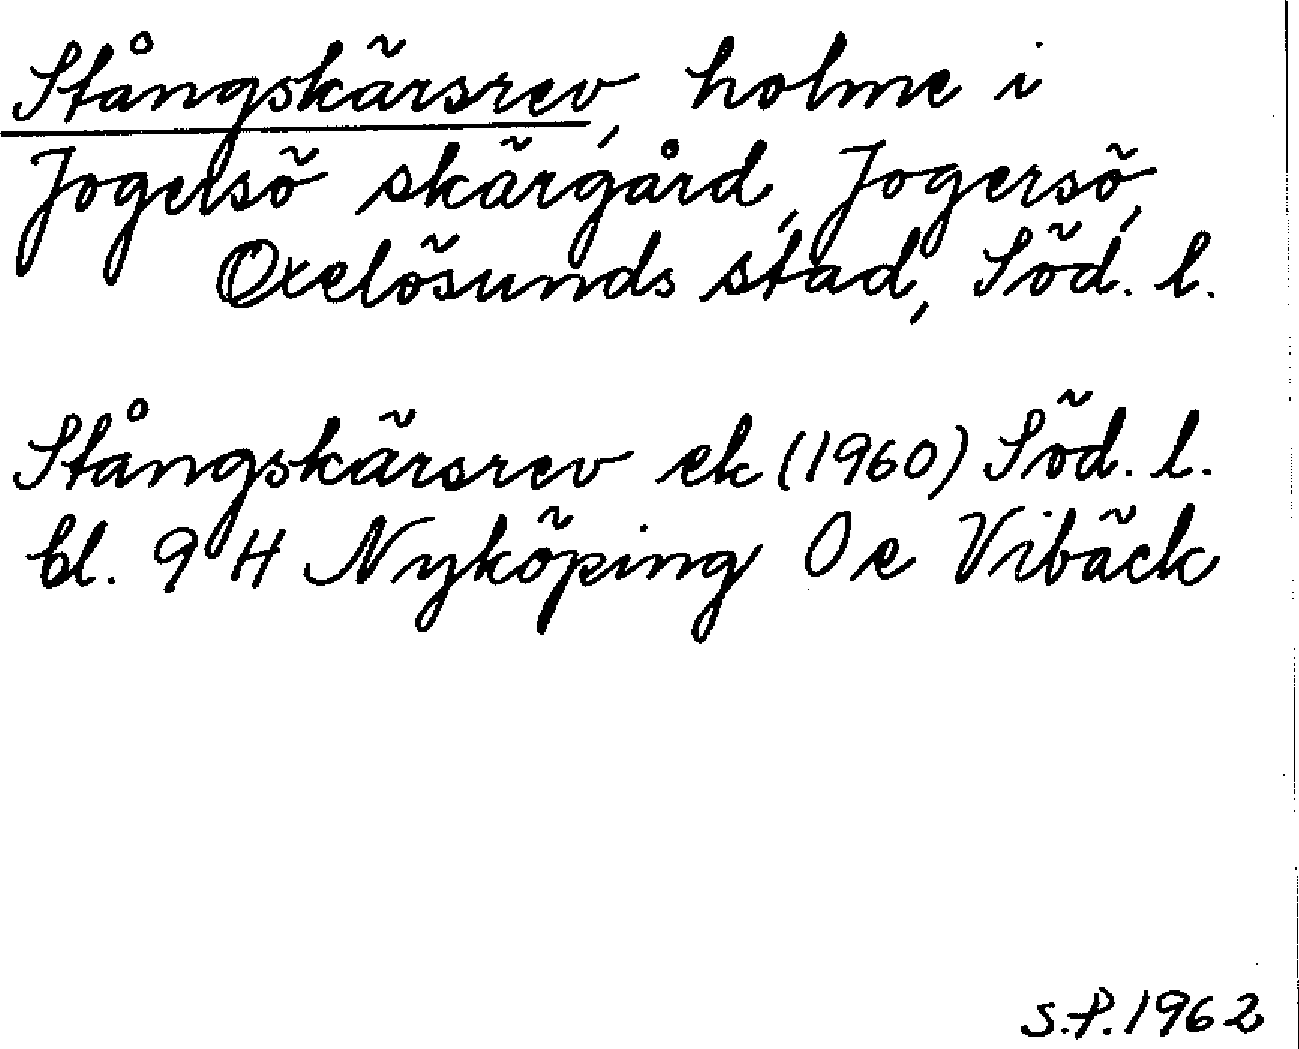 Stångskärsrev, holme i
Jogersö skärgård, Jogersö,
Oxelösunds stad, Söd. l.
Stångskärsrev ek (1960) Söd. l.
bl. 9 H Nyköping 0 e Vibäck
S.P. 1962